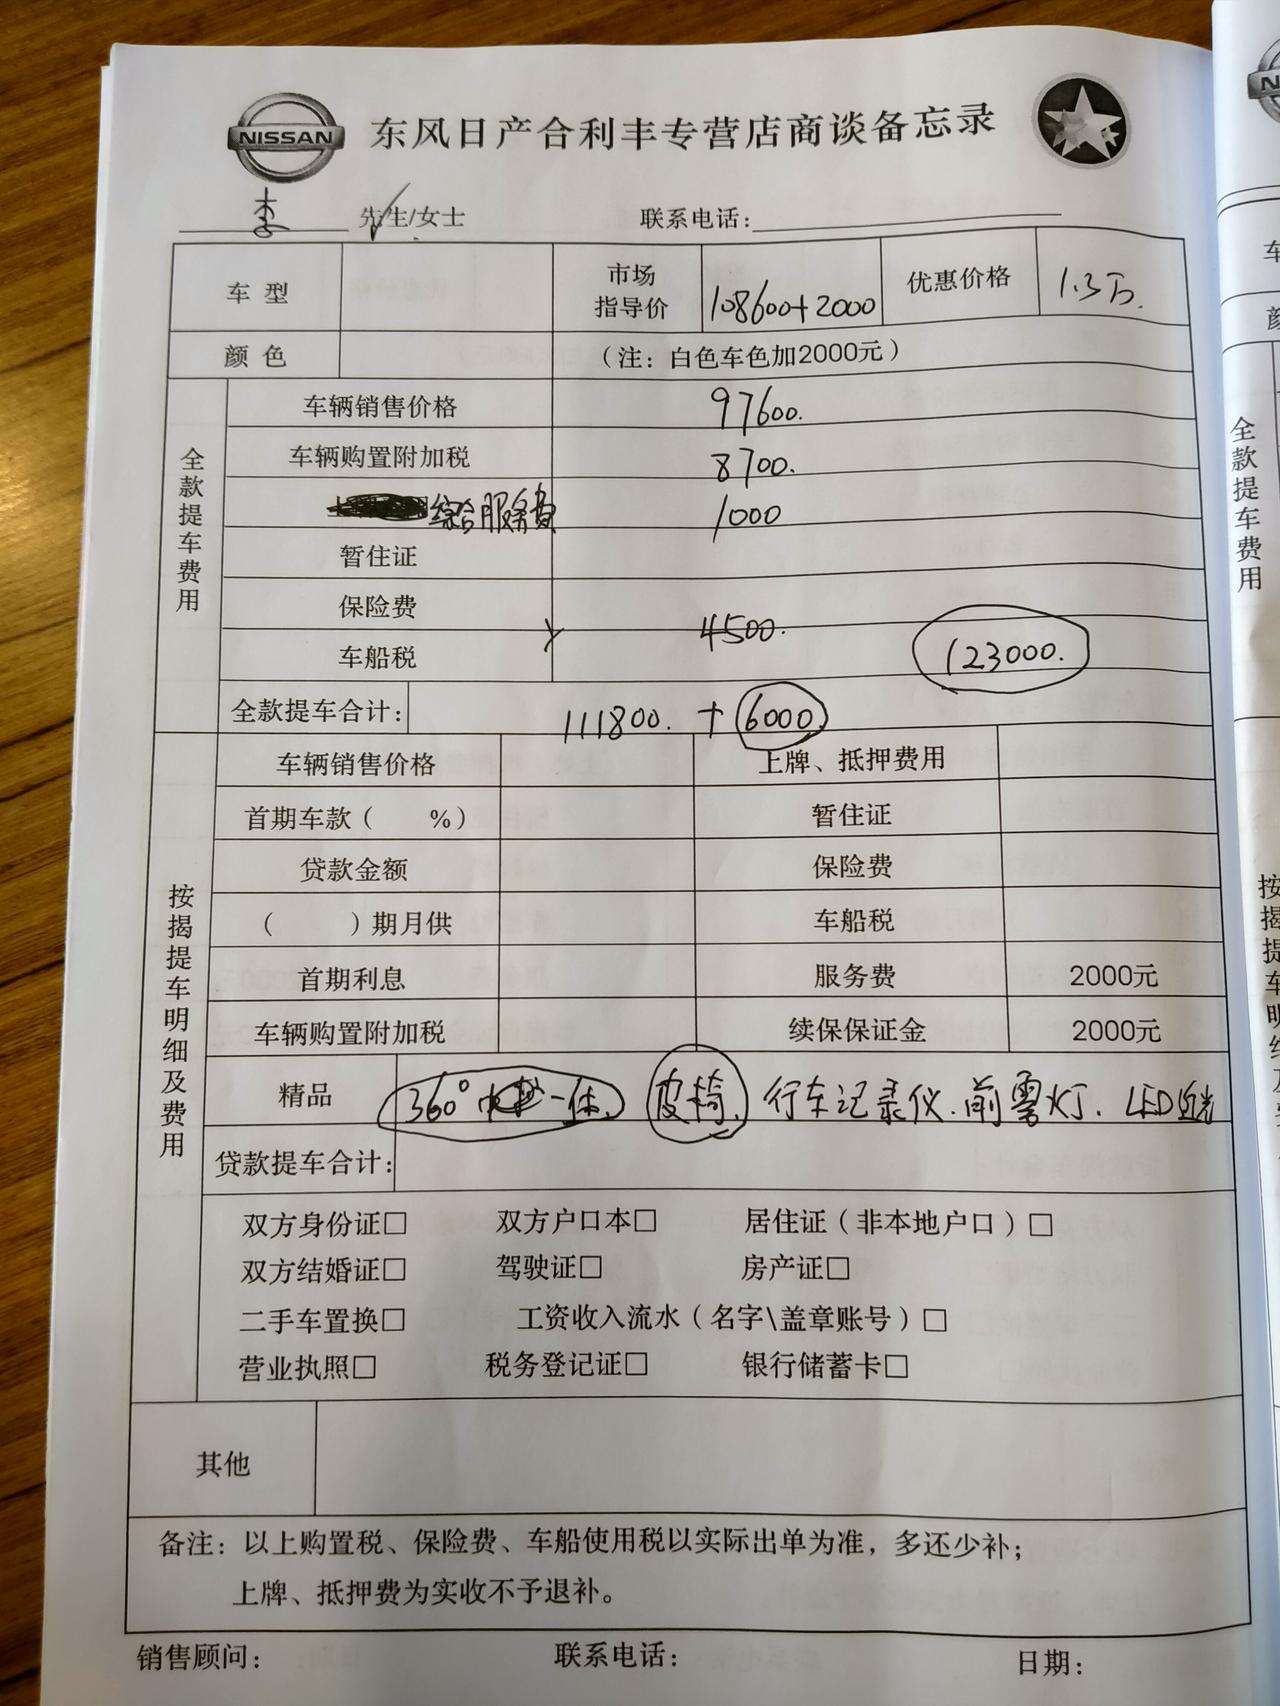 NISSAN 东风日产合利丰专营店商谈备忘录
李 先生/女士 联系电话:
车型 市场指导价 108600+2000 优惠价格 1.3万.
颜色 (注:白色车色加2000元)
全款提车费用
车辆销售价格 97600.
车辆购置附加税 8700.
综合服务费 1000
暂住证
保险费
4500.
车船税 123000.
全款提车合计: 111800. + 6000
按揭提车明细及费用
车辆销售价格 上牌、抵押费用
首期车款( %) 暂住证
贷款金额 保险费
( )期月供 车船税
首期利息 服务费 2000元
车辆购置附加税 续保保证金 2000元
精品 360° 一体. 皮椅. 行车记录仪. 前雾灯. LED近光
贷款提车合计:
双方身份证□ 双方户口本□ 居住证(非本地户口)□
双方结婚证□ 驾驶证□ 房产证□
二手车置换□ 工资收入流水(名字\盖章账号)□
营业执照□ 税务登记证□ 银行储蓄卡□
其他
备注:以上购置税、保险费、车船使用税以实际出单为准,多还少补;
上牌、抵押费为实收不予退补。
销售顾问: 联系电话: 日期:
全款提车费用